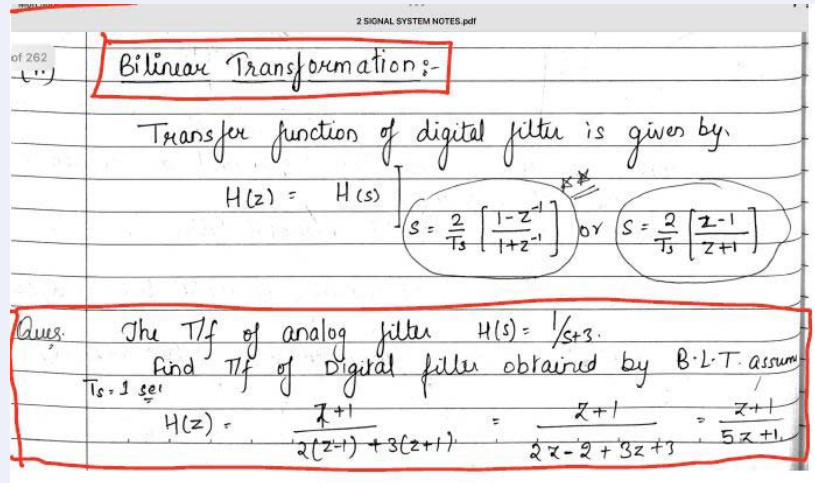 2 SIGNAL SYSTEM NOTES.pdf
of 262
Bilinear Transformation :-
Transfer function of digital filter is given by.
H(z) = H(s)] S = 2/Ts [1-z⁻¹/1+z⁻¹] or S = 2/Ts [z-1/z+1]
Ques. The T/f of analog filter H(s) = 1/s+3.
find T/f of Digital filter obtained by B.L.T. assum
Ts = 1 sec
H(z) = z+1/2(z-1)+3(z+1) = z+1/2z-2+3z+3 = z+1/5z+1.